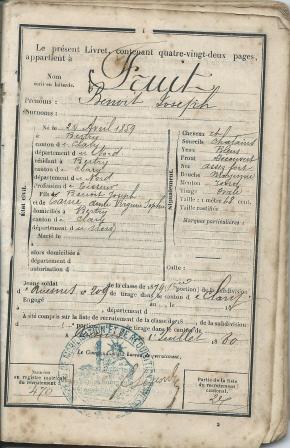 Le présent Livret, contenant quatre-vingt-deux pages,
appartient à
Nom Fruit
écrit en bâtarde.
Prénoms : Benoit Joseph
Surnoms :
ÉTAT CIVIL.
Né le 24 Avril 1859
à Bertry
canton de Clary
département d Nord
résidant à Bertry
canton de Clary
département d Nord
Profession d Tisseur
Fils de Benoit Joseph
et de Virginie Sophie
domiciliés à Bertry
canton de Clary
département d Nord
Marié le
à
alors domiciliée à
département d
autorisation d
Signalement.
Cheveux et
Sourcils châtains
Yeux Bleus
Front Découvert
Nez assez fort
Bouche Moyenne
Menton rond
Visage ovale
Taille : 1 mètre 68 cent.
Taille rectifiée
Marques particulières :
Culte :
Jeune soldat
de la classe de 1879 portion) de la subdivision
d Avesnes no 209 de tirage dans le canton d Clary
Engagé
à , département d
A été compris sur la liste de recrutement de la classe de 18 , de la subdivision
de tirage dans le canton de
Juillet
Le Commandant du bureau de recrutement,
Numéro
au registre matricule
du recrutement :
Partie de la liste
du recrutement cant.
2